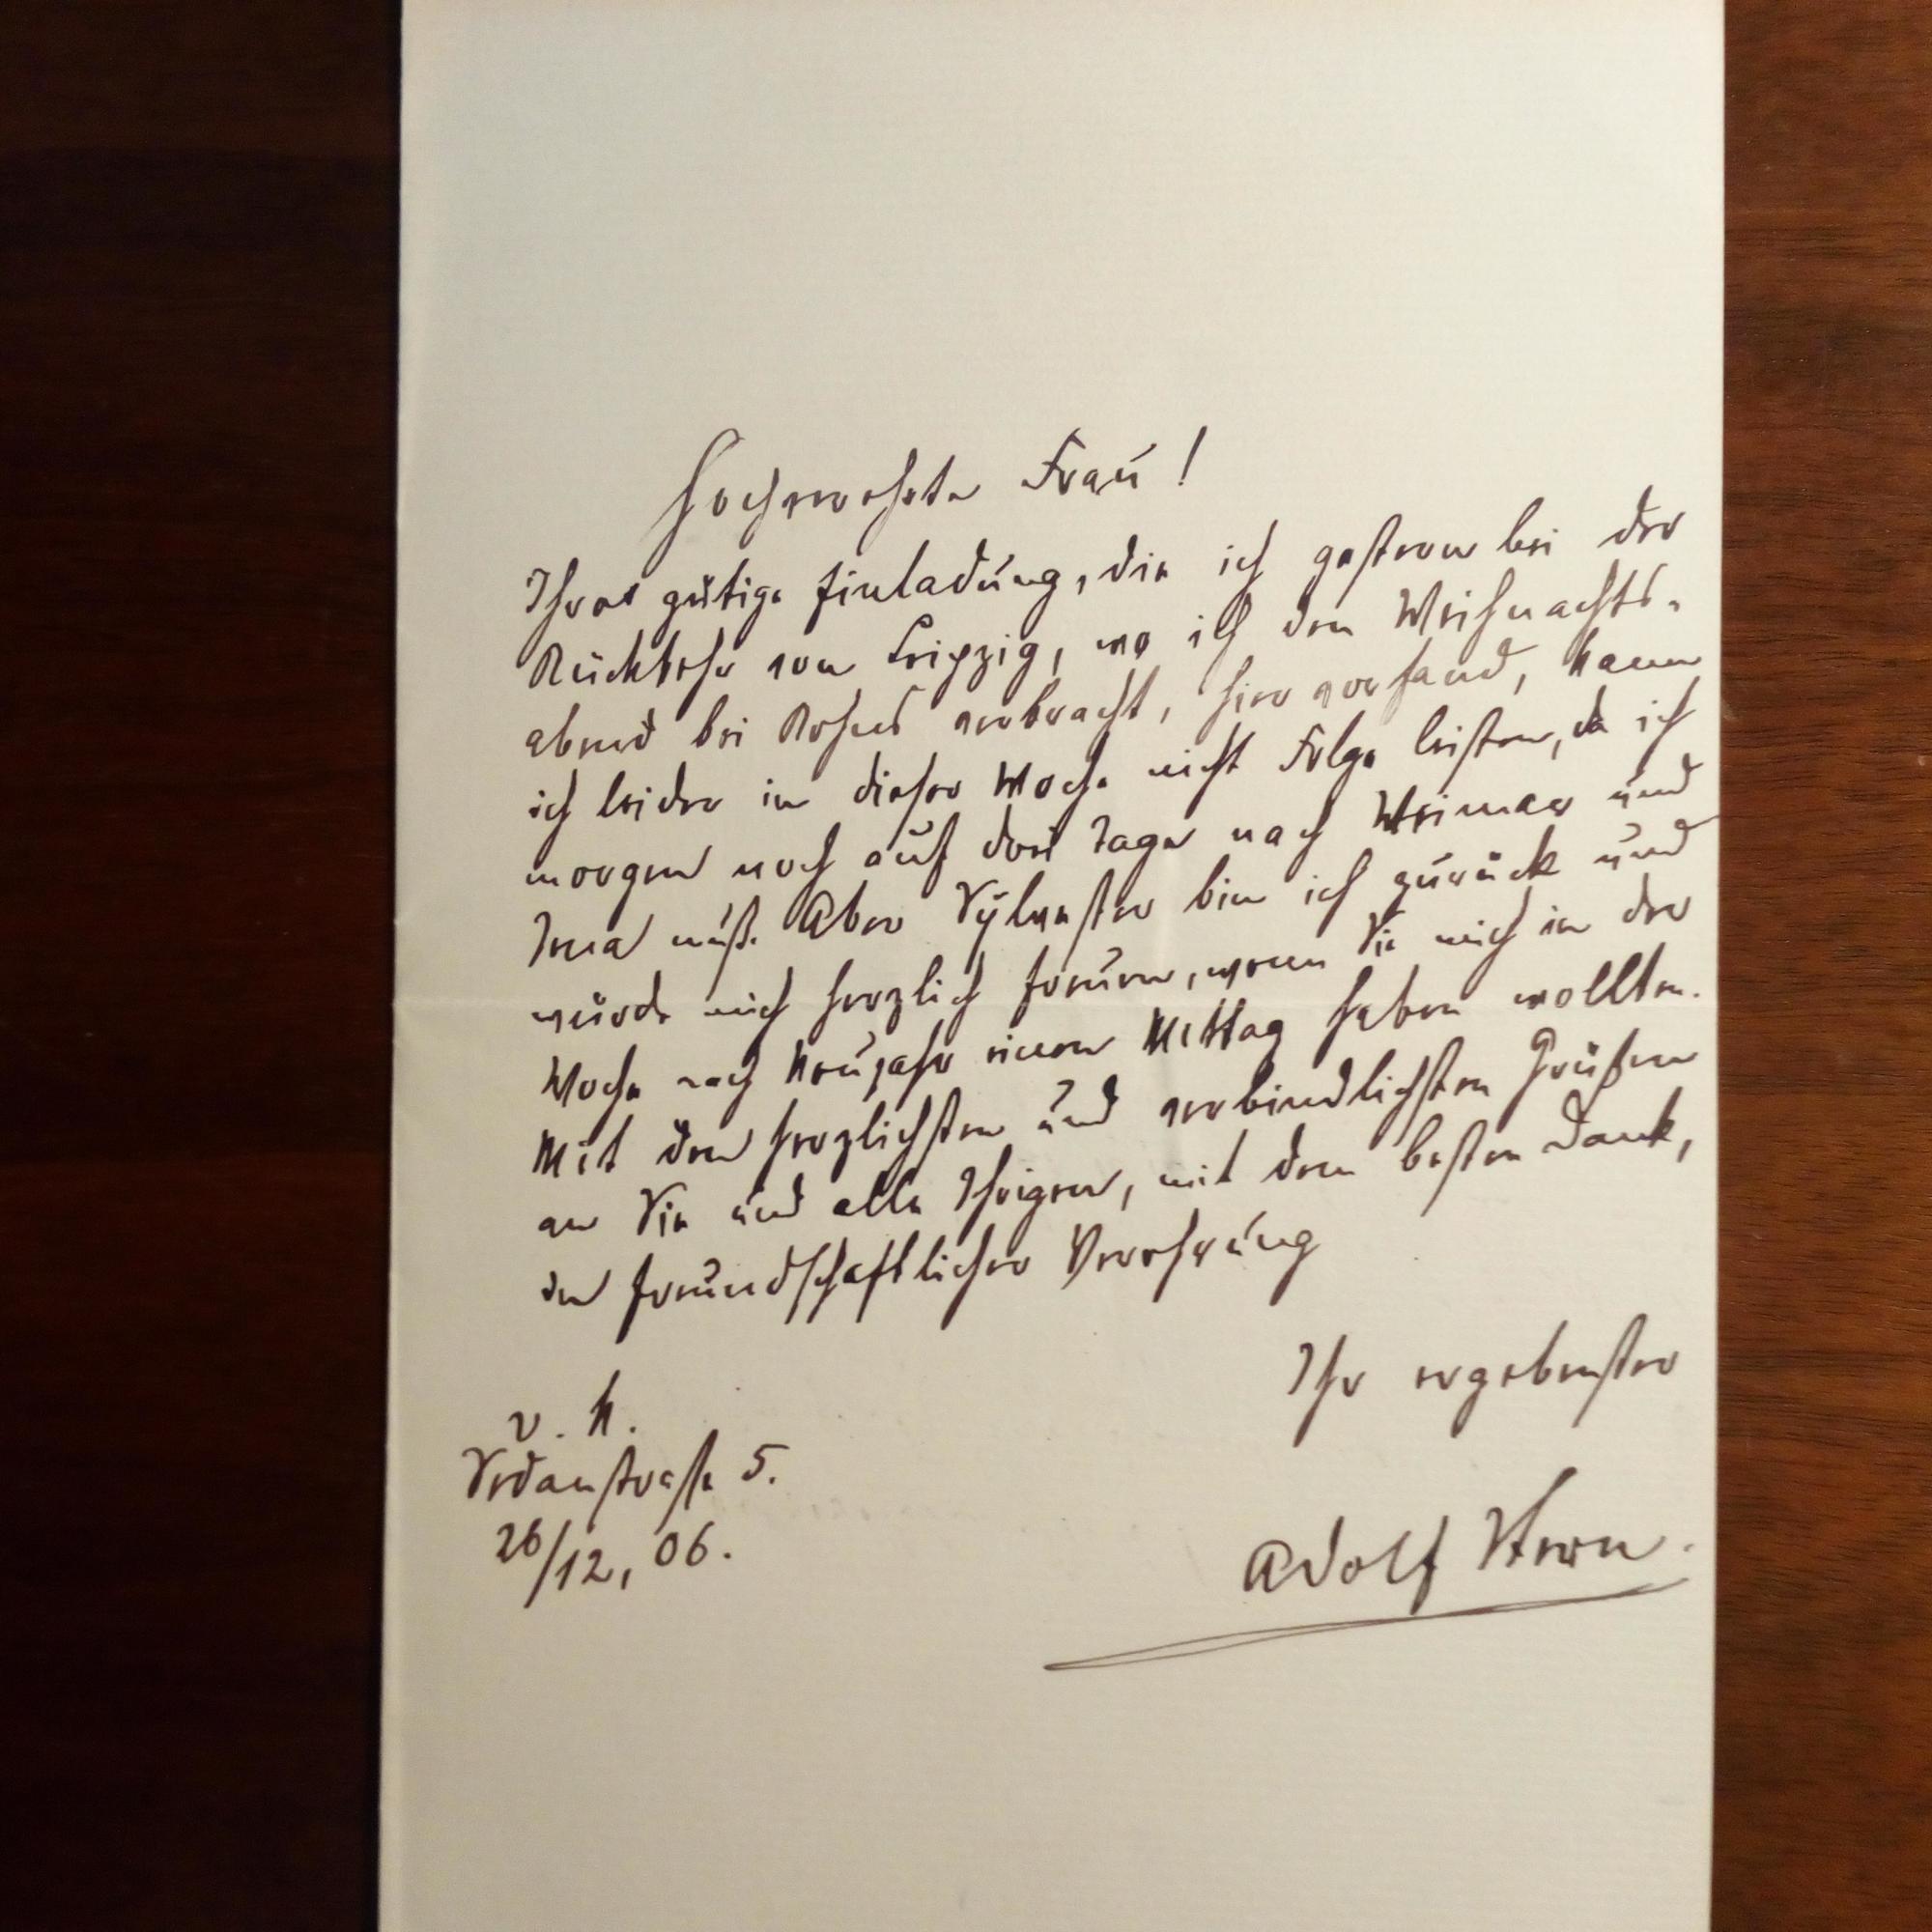 Hochverehrte Frau!
Ihrer gütige Einladung, die ich gestern bei der
Rückkehr von Leipzig, wo ich den Weihnachts-
abend bei verbracht, hier vorfand, kann
ich leider in dieser Woche nicht Folge leisten, da ich
morgen noch auf drei Tage nach Weimar und
Jena muß. Aber Sylvester bin ich zurück und
würde mich herzlich freuen, wenn Sie mich in der
Woche nach Neujahr einen Mittag haben wollten.
Mit den herzlichsten und verbindlichsten Grüßen
an Sie und alle Ihrigen, mit dem besten Dank,
in freundschaftlicher Verehrung
Ihr ergebenster
Adolf Stern.
v. H.
Sedanstraße 5.
26/12, 06.